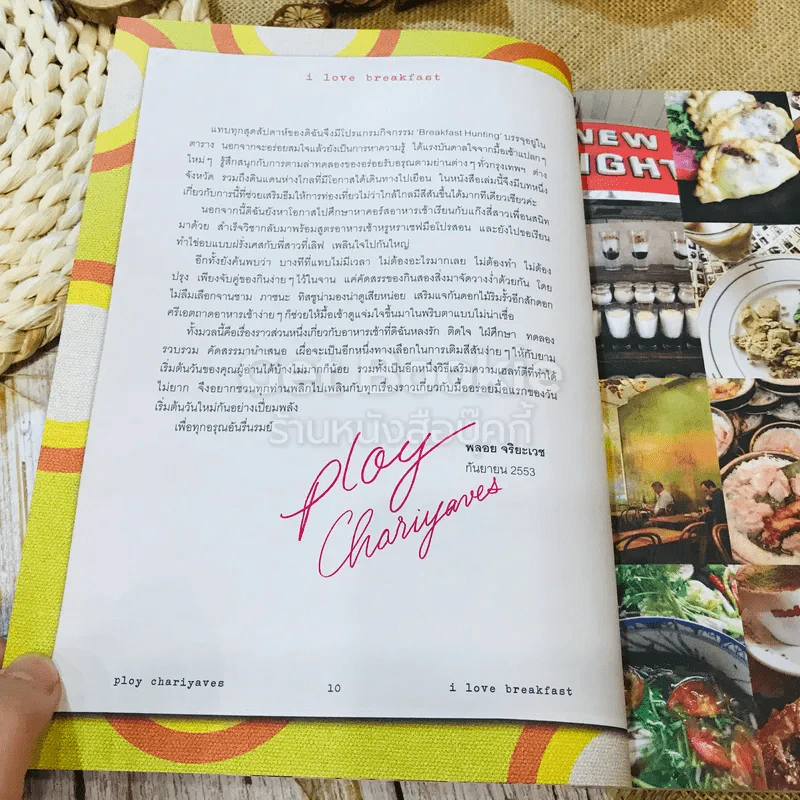 i love breakfast
แทบทุกสุดสัปดาห์ของดิฉันจึงมีโปรแกรมกิจกรรม ‘Breakfast Hunting’ บรรจุอยู่ใน
ตาราง นอกจากจะอร่อยสมใจแล้วยังเป็นการหาความรู้ ได้แรงบันดาลใจจากมื้อเช้าแปลกๆ
ใหม่ๆ รู้สึกสนุกกับการตามล่าทดลองของอร่อยรับอรุณตามย่านต่างๆ ทั่วกรุงเทพฯ ต่าง
จังหวัด รวมถึงดินแดนห่างไกลที่มีโอกาสได้เดินทางไปเยือน ในหนังสือเล่มนี้จึงมีบทหนึ่ง
เกี่ยวกับการนี้ที่ช่วยเสริมธีมให้การท่องเที่ยวไม่ว่าใกล้ไกลมีสีสันขึ้นได้มากทีเดียวเชียวค่ะ
นอกจากนี้ดิฉันยังหาโอกาสไปศึกษาหาคอร์สอาหารเช้าเรียนกับแก๊งสี่สาวเพื่อนสนิท
มาด้วย สำเร็จวิชากลับมาพร้อมสูตรอาหารเช้าหรูหราเชฟมือโปรสอน และยังไปขอเรียน
ทำไข่อบแบบฝรั่งเศสกับพี่สาวที่เลิฟ เพลินใจไปกันใหญ่
อีกทั้งยังค้นพบว่า บางทีที่แทบไม่มีเวลา ไม่ต้องอะไรมากเลย ไม่ต้องทำ ไม่ต้อง
ปรุง เพียงจับคู่ของกินง่ายๆ ไว้ในจาน แค่คัดสรรของกินสองสิ่งมาจัดวางง่ำด้วยกัน โดย
ไม่ลืมเลือกจานชาม ภาชนะ ทิสชูน่ามองน่าดูเสียหน่อย เสริมแจกันดอกไม้ริมรั้วอีกสักดอก
ครีเอตถาดอาหารเช้าง่ายๆ ก็ช่วยให้มื้อเช้าดูแจ่มใจขึ้นมาในพริบตาแบบไม่น่าเชื่อ
ทั้งมวลนี้คือเรื่องราวส่วนหนึ่งเกี่ยวกับอาหารเช้าที่ดิฉันหลงรัก ติดใจ ใฝ่ศึกษา ทดลอง
รวบรวม คัดสรรมานำเสนอ เผื่อจะเป็นอีกหนึ่งทางเลือกในการเติมสีสันง่ายๆ ให้กับยาม
เริ่มต้นวันของคุณผู้อ่านได้บ้างไม่มากก็น้อย รวมทั้งเป็นอีกหนึ่งวิธีเสริมความเฮลท์ตี้ที่ทำได้
ไม่ยาก จึงอยากชวนทุกท่านพลิกไปเพลินกับทุกเรื่องราวเกี่ยวกับมื้ออร่อยมื้อแรกของวัน
เริ่มต้นวันใหม่กันอย่างเปี่ยมพลัง
เพื่อทุกอรุณอันรื่นรมย์
ร้านหนังสือบุ๊คกี้
พลอย จริยะเวช
กันยายน 2553
Ploy
Chariyaves
ploy chariyaves
10
i love breakfast
NEW
IGHT